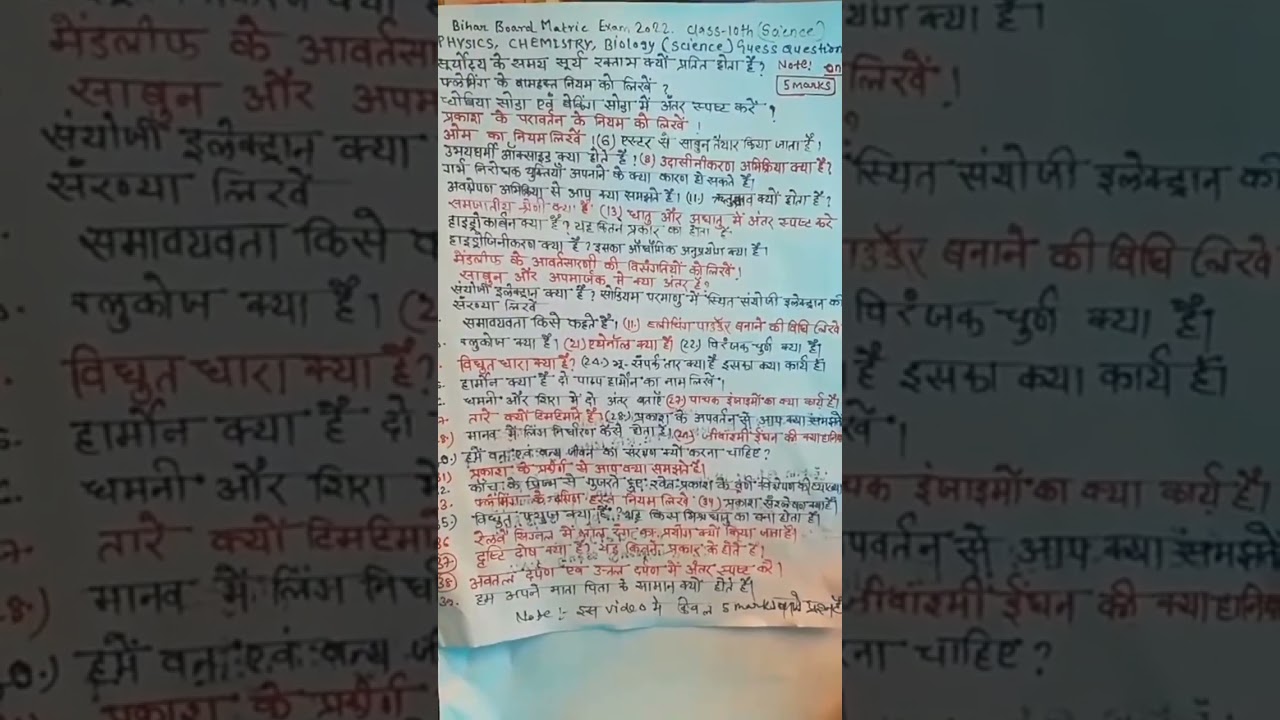 Bihar Board Matric Exam 2022. Class-10th (Science)
PHYSICS, CHEMISTRY, Biology (Science) Guess Question
सूर्योदय के समय सूर्य रक्ताभ क्यों प्रतित होता है? Note! on
फ्लेमिंग के वामहस्त नियम को लिखें ? 5 marks
धोबिया सोडा एवं बेकिंग सोडा में अंतर स्पष्ट करें ?
प्रकाश के परावर्तन के नियम को लिखें !
ओम का नियम लिखें ! (6) एस्टर से साबुन तैयार किया जाता है !
उभयधर्मी ऑक्साइड क्या होते हैं ! (8) उदासीनीकरण अभिक्रिया क्या है?
गर्भ निरोधक युक्तियाँ अपनाने के क्या कारण हो सकते हैं।
अवक्षेपण अभिक्रिया से आप क्या समझते हैं। (11.) क्यों होता है ?
समजातीय श्रेणी क्या है (13) धातु और अधातु में अंतर स्पष्ट करे
हाइड्रोकार्बन क्या है ? यह कितने प्रकार का होता है-
हाइड्रोजिनीकरण क्या है ? इसका औद्योगिक अनुप्रयोग क्या है।
मेंडलीफ के आवर्तसारणी की विसंगतियों को लिखें !
साबुन और अपमार्जक में क्या अंतर है ?
संयोजी इलेक्ट्रान क्या है ? सोडियम परमाणु में स्थित संयोजी इलेक्ट्रान की
संख्या लिखें
समावयवता किसे कहते हैं। (11.) ब्लीचिंग पाउडर बनाने की विधि लिखें
ग्लुकोज क्या है। (21) एथेनॉल क्या है। (22) विरंजक चुर्ण क्या है।
विद्युत धारा क्या है? (24.) भू-संपर्क तार क्या है इसका क्या कार्य है।
हार्मोन क्या है दो पादप हार्मोन का नाम लिखें !
धमनी और शिरा में दो अंतर बताएं (27) पाचक इंजाइमों का क्या कार्य है।
तारे क्यों टिमटिमाते हैं ? (28.) प्रकाश के अपवर्तन से आप क्या समझते
मानव में लिंग निर्धारण कैसे होता है। जीवाश्मी ईंधन की क्या हानि
हमें वन एवं वन्य जीवन का संरक्षण क्यों करना चाहिए ?
31) प्रकाश के प्रकीर्णन से आप क्या समझते हैं।
2. काँच के प्रिज्म से गुजरते हुए श्वेत प्रकाश के वर्ण विक्षेपण की
3. फ्लेमिंग के दक्षिण हस्त नियम लिखें (34) प्रकाश संश्लेषण क्या है।
35.) विद्युत फ्युज क्या है ? यह किस मिश्रधातु का बना होता है।
36 रेलवे सिग्नल में लाल रंग का प्रयोग क्यों किया जाता है।
37) दृष्टि दोष क्या है? यह कितने प्रकार के होते हैं।
38) अवतल दर्पण एवं उत्तल दर्पण में अंतर स्पष्ट करें।
39. हम अपने माता पिता के सामान क्यों होते हैं।
Note :- इस video में केवल 5 marks वाले प्रश्न है